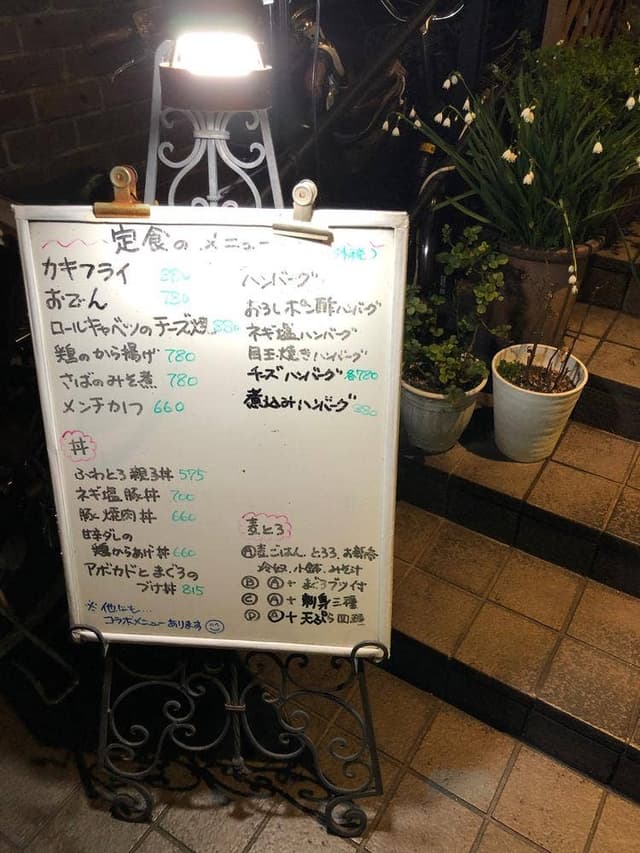 定食のメニュー
カキフライ 880
おでん 780
ロールキャベツのチーズ焼 880
鶏のから揚げ 780
さばのみそ煮 780
メンチかつ 660
丼
ふわとろ親子丼 575
ネギ塩豚丼 700
豚焼肉丼 660
甘辛ダレの
鶏からあげ丼 660
アボカドとまぐろの
づけ丼 815
※他にも…
コラボメニューあります
ハンバーグ
おろしポン酢ハンバーグ
ネギ塩ハンバーグ
目玉焼きハンバーグ
チーズハンバーグ 各780
煮込みハンバーグ 880
麦とろ
Ⓐ麦ごはん、とろろ、お新香
冷奴、小鉢、みそ汁
Ⓑ Ⓐ+まぐろブツ付
Ⓒ Ⓐ+刺身三種
Ⓓ Ⓐ+天ぷら四種